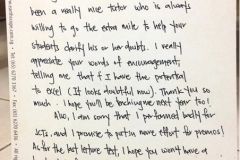 been a really nice tutor who is always
willing to go the extra mile to help your
students clarify his or her doubts. I really
appreciate your words of encouragement,
telling me that I have the potential
to excel (It looks doubtful now). Thank you so
much. I hope you'll be teaching me next year too!
Also, I am sorry that I performed badly for
SCTs, and I promise to put in more effort for promos!
As for the last lecture test, I hope you won't have a